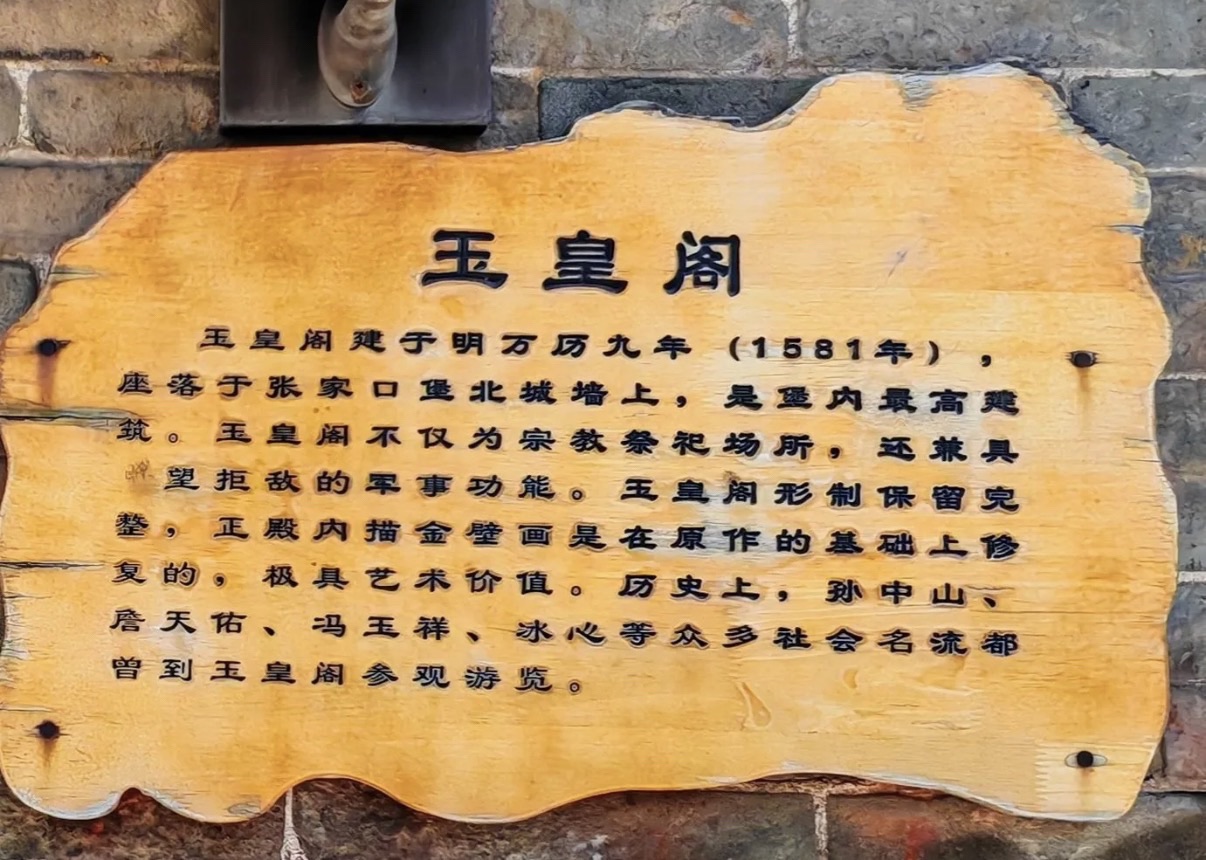 玉皇阁
玉皇阁建于明万历九年（1581年），
座落于张家口堡北城墙上，是堡内最高建
筑。玉皇阁不仅为宗教祭祀场所，还兼具
望拒敌的军事功能。玉皇阁形制保留完
整，正殿内描金壁画是在原作的基础上修
复的，极具艺术价值。历史上，孙中山、
詹天佑、冯玉祥、冰心等众多社会名流都
曾到玉皇阁参观游览。